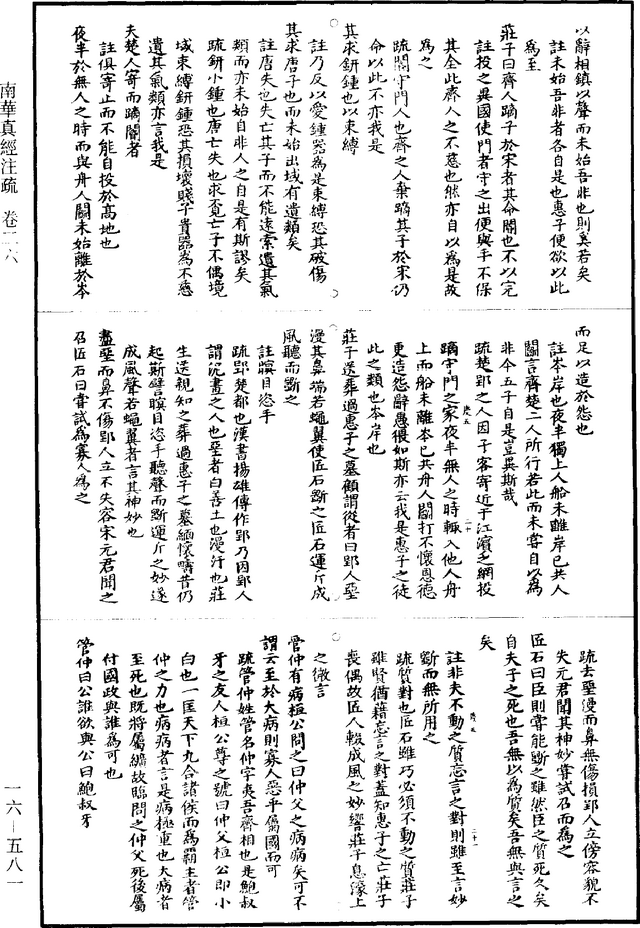 以辭相鎮以聲而未始吾非也則奚若矣
註未始吾非者各自是也惠子便欲以此
為至
莊子曰齊人蹢子於宋者其命閽也不以完
註投之異國使門者守之出便與手不保
其全此齊人之不慈也然亦自以為是故
為之
疏閽守門人也齊之人棄蹢其子於宋仍
命以此不亦我是
其求鈃鍾也以束縛
註乃反以愛鍾器為是束縛恐其破傷
其求唐子也而未始出域有遺類矣
註唐失也失亡其子而不能遠索遺其氣
類而亦未始自非人之自是有斯謬矣
疏鈃小鍾也唐亡失也求覓亡子不偶境
域束縛鈃鍾恐其損壞賤子貴器為不慈
遺其氣類亦言我是
夫楚人寄而蹢閽者
註俱寄止而不能自投於高地也
夜半於無人之時而與舟人鬭未始離於岑
而足以造於怨也
註岑岸也夜半獨上人船未離岸已共人
鬭言齊楚二人所行若此而未嘗自以為
非今五子自是豈異斯哉
疏楚郢之人因子客寄近于江濱之網投
蹢守門之家夜半無人之時輙入他人舟
上而船未離岑已共舟人鬭打不懷恩德
更造怨辭愚猥如斯亦云我是惠子之徒
此之類也岑岸也
莊子送葬過惠子之墓顧謂從者曰郢人堊
漫其鼻端若蠅翼使匠石斲之匠石運斤成
風聽而斲之
註瞑目恣手
疏郢楚都也漢書揚雄傳作郢乃因郢人
謂泥畫之人也堊者白善土也漫汙也莊
生送親知之葬過惠子之墓緬懷疇昔仍
起斯譬瞑目恣手聽聲而斲運斤之妙遂
成風聲若蠅翼者言其神妙也
盡堊而鼻不傷郢人立不失容宋元君聞之
召匠石曰嘗試為寡人為之
疏去堊漫而鼻無傷損郢人立傍容貌不
失元君聞其神妙嘗試召而為之
匠石曰臣則嘗能斲之雖然臣之質死久矣
自夫子之死也吾無以為質矣吾無與言之
矣
註非夫不動之質忘言之對則雖至言妙
斲而無所用之
疏質對也匠石雖巧必須不動之質莊子
雖賢猶藉忘言之對蓋知惠子之亡莊子
喪偶故匠人輟成風之妙響莊子息濠上
之微言
管仲有病桓公問之曰仲父之病病矣可不
謂云至於大病則寡人惡乎屬國而可
疏管仲姓管名仲字夷吾齊相也是鮑叔
牙之友人桓公尊之號曰仲父桓公即小
白也一匡天下九合諸侯而為霸主者管
仲之力也病病者言是病極重也大病者
至死也既將屬纊故臨問之仲父死後屬
付國政與誰為可也
管仲曰公誰欲與公曰鮑叔牙
南華真經注疏 卷二六
一六－五八一